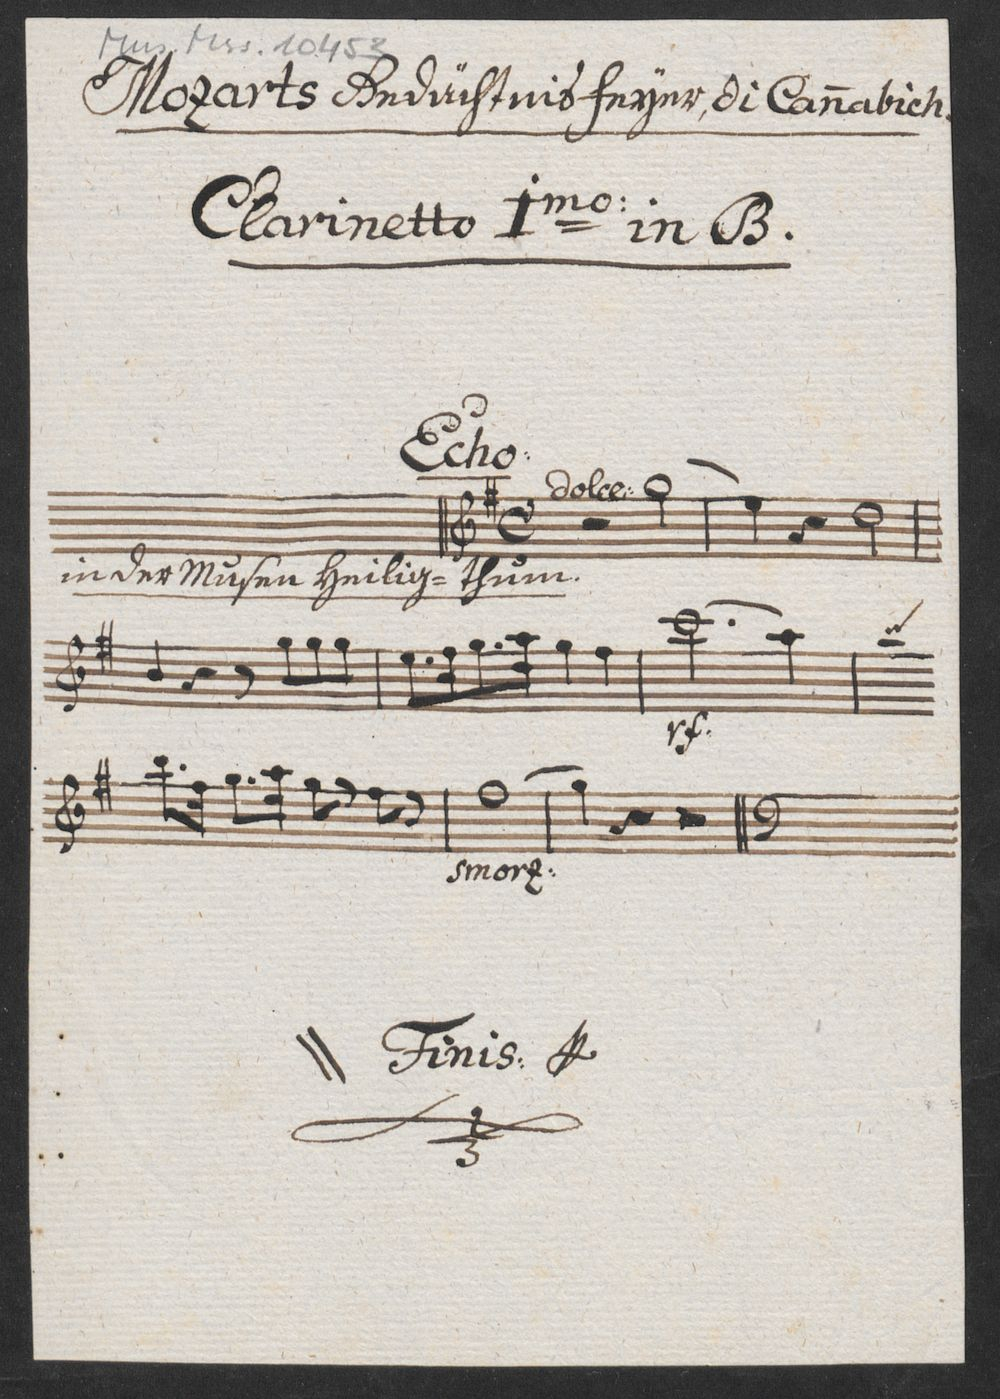 Mus. Mss. 10453
Mozarts Gedächtnis feÿer, di Cañabich.
Clarinetto 1mo: in B.
Echo:
dolce:
in der Musen Heilig= thum.
rf:
smorz:
Finis: